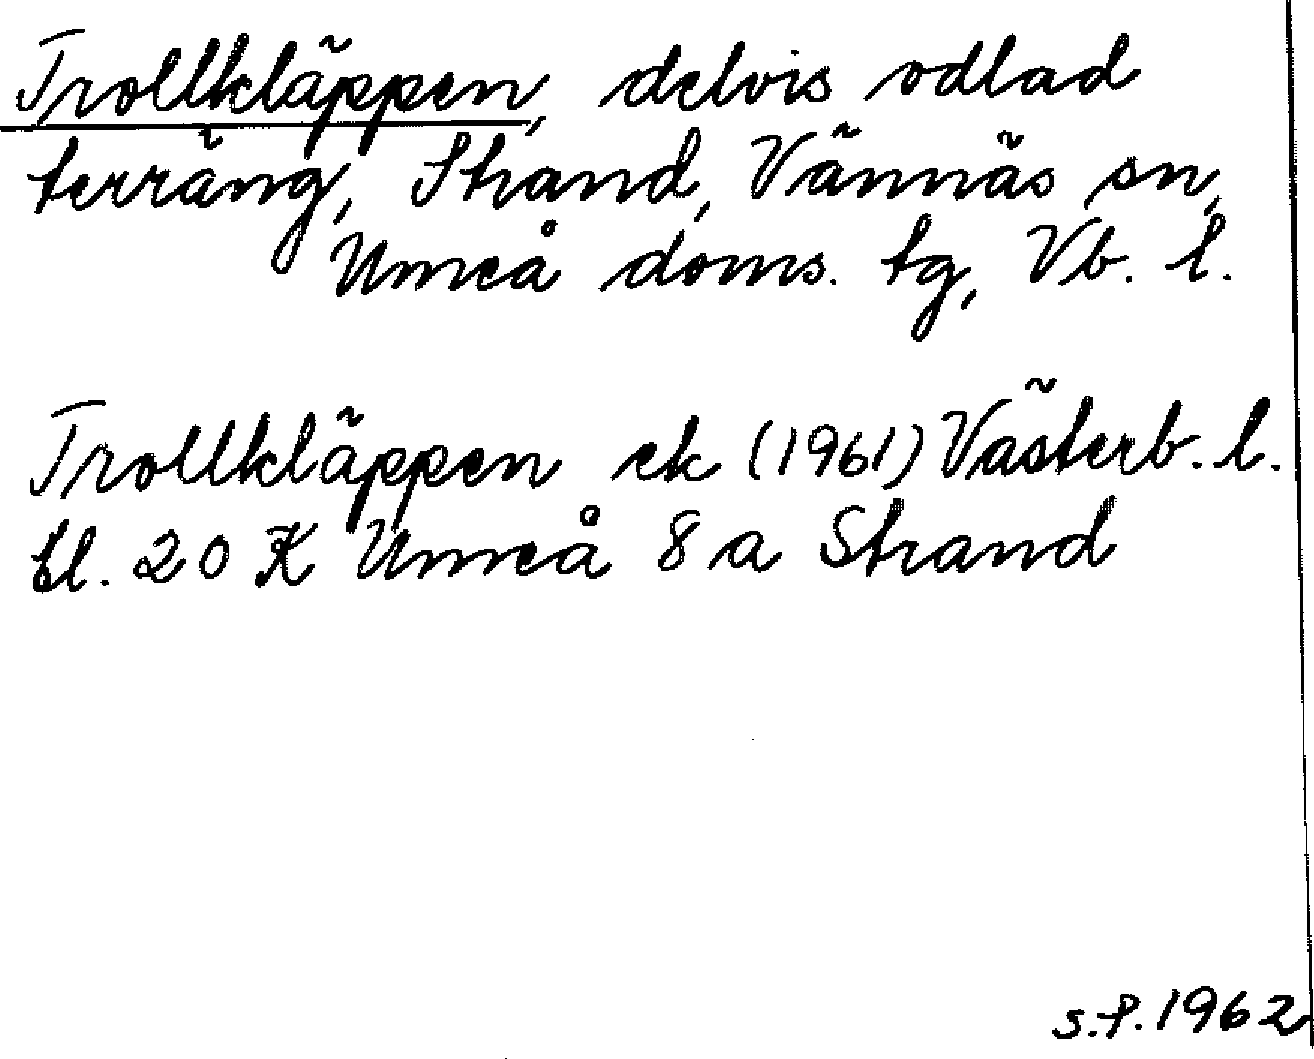 Trollkläppen, delvis odlad
terräng, Strand, Vännäs sn,
Umeå doms. tg, Vb. l.
Trollkläppen ek (1961) Västerb. l.
bl. 20 K Umeå 8 a Strand
s.f. 1962